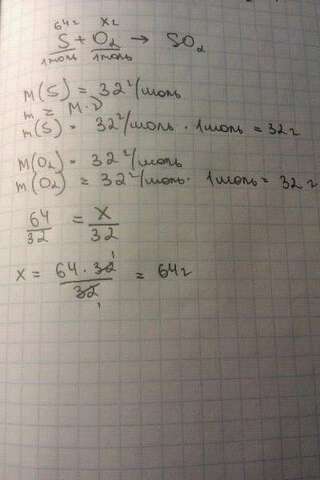 64г Xг
S + O₂ → SO₂
1моль 1моль
M(S) = 32 г/моль
m = M·ν
m(S) = 32 г/моль · 1моль = 32г
M(O₂) = 32 г/моль
m(O₂) = 32 г/моль · 1моль = 32г
64/32 = X/32
X = 64·32/32 = 64г